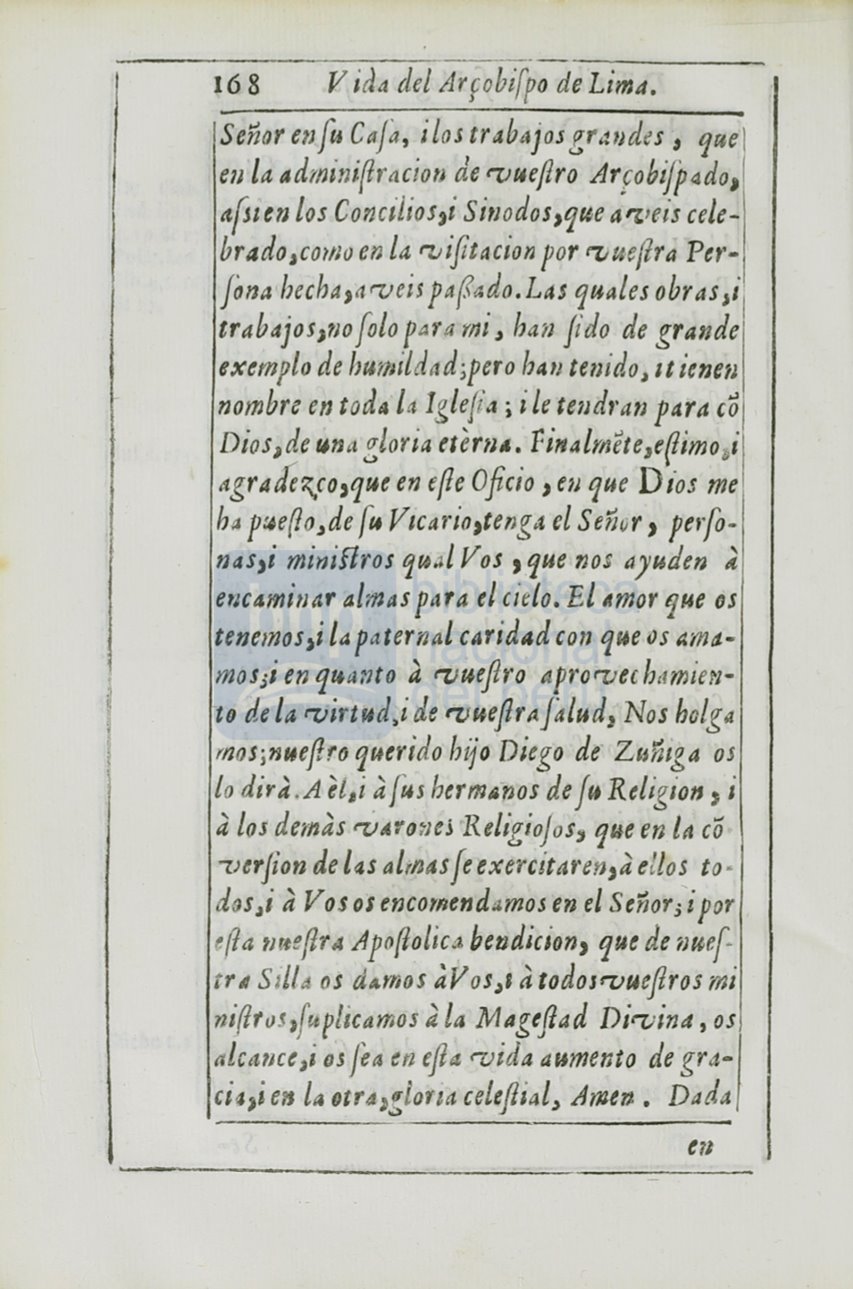 168 Vida del Arçobiſpo de Lima.
Señor en ſu Caſa, i los trabajos grandes, que
en la adminiſtracion de vueſtro Arçobiſpado,
aſsi en los Concilios, i Sinodos, que aveis cele-
brado, como en la viſitacion por vueſtra Per-
ſona hecha, aveis paßado. Las quales obras, i
trabajos, no ſolo para mi, han ſido de grande
exemplo de humildad; pero han tenido, i tienen
nombre en toda la Igleſia; i le tendran para cõ
Dios, de una gloria etèrna. Finalmẽte, eſtimo, i
agradezco, que en eſte Oficio, en que Dios me
ha pueſto, de ſu Vicario, tenga el Señor, perſo-
nas, i miniſtros qual Vos, que nos ayuden à
encaminar almas para el cielo. El amor que os
tenemos, i la paternal caridad con que os ama-
mos; i en quanto à vueſtro aprovechamien-
to de la virtud, i de vueſtra ſalud, Nos holga
mos; nueſtro querido hijo Diego de Zuñiga os
lo dirà. A èl, i à ſus hermanos de ſu Religion, i
à los demàs varones Religioſos, que en la cõ
verſion de las almas ſe exercitaren, à ellos to-
dos, i à Vos os encomendamos en el Señor; i por
eſta nueſtra Apoſtolica bendicion, que de nueſ-
tra Silla os damos à Vos, i à todos vueſtros mi
niſtros, ſuplicamos à la Mageſtad Divina, os
alcance, i os ſea en eſta vida aumento de gra-
cia, i en la otra, gloria celeſtial, Amen. Dada
en